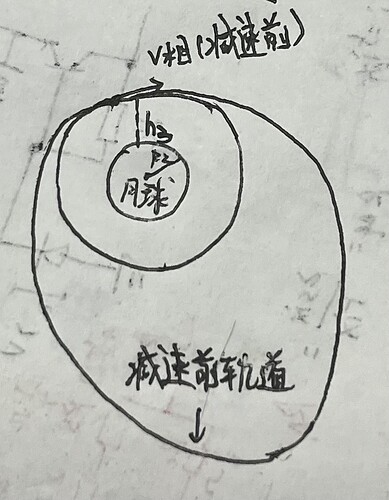 V相(减速前)
h3
R2
月球
减速前轨道